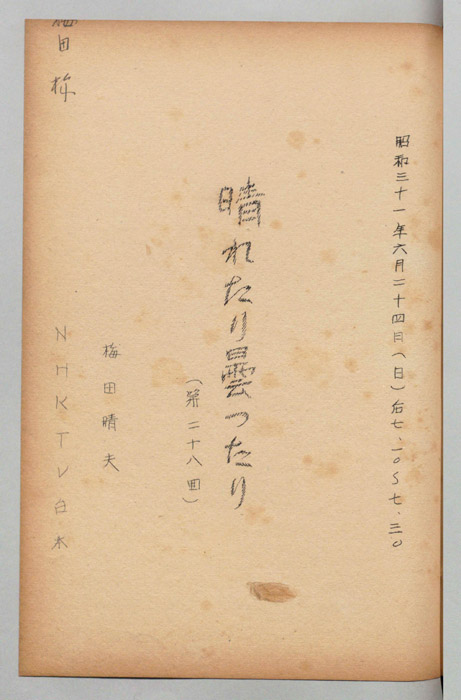 昭和三十一年六月二十四日(日)后七.一〇〜七.三〇
晴れたり曇ったり
(第二十八回)
梅田晴夫
NHKTV台本
梅田